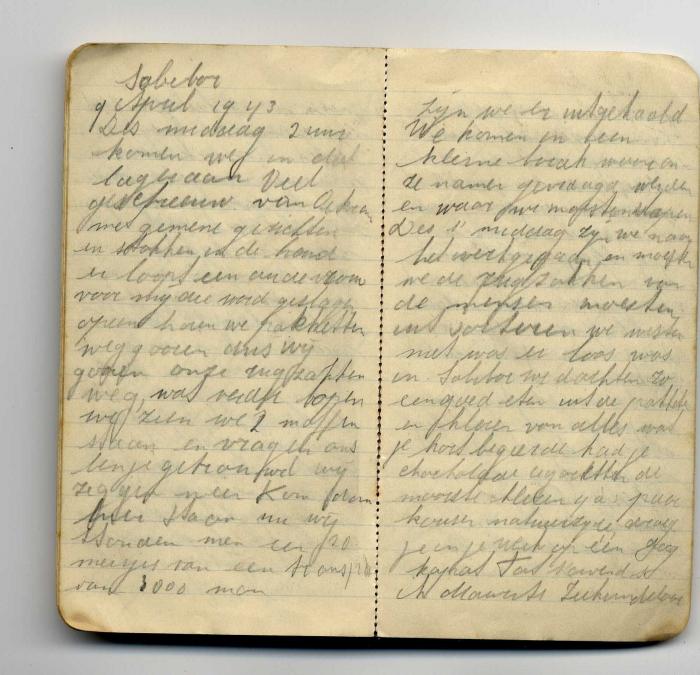 Sobibor
9 April 1943
Des middag 2 uur
komen we in dat
lager aan Veel
geschreeuw van
met gemene gezichten
en stokken in de hand
er loopt een oude vrouw
voor mij die word geslagen
opeen horen we pakketten
weggooien dus wij
gooien onze rugzakken
weg, was verder lopen
wij zien we 2 moffen
staan en vragen ons
ben je getrouwd wij
zeggen neen Kom dan
hier staan nu wij
stonden men een 20
meisjes van een transp
van 3000 man
zijn we er uitgehaald
We komen in een
kleine barak waar on
ze namen gevraagd werden
en waar we moesten slapen
Des middag zijn we naar
het werk gegaan en moesten
we de rugzakken van
de mensen moesten
uit sorteren we wisten
niet was er loos was
in Sobibor we dachten zo
een goed eten uit de pakketten
en kleren van alles was
je hart begeerde had je
chocholade cigaretten de
mooiste kleren ja paar
kousen natuurzijde droeg
je en je werk op één dag
kapot